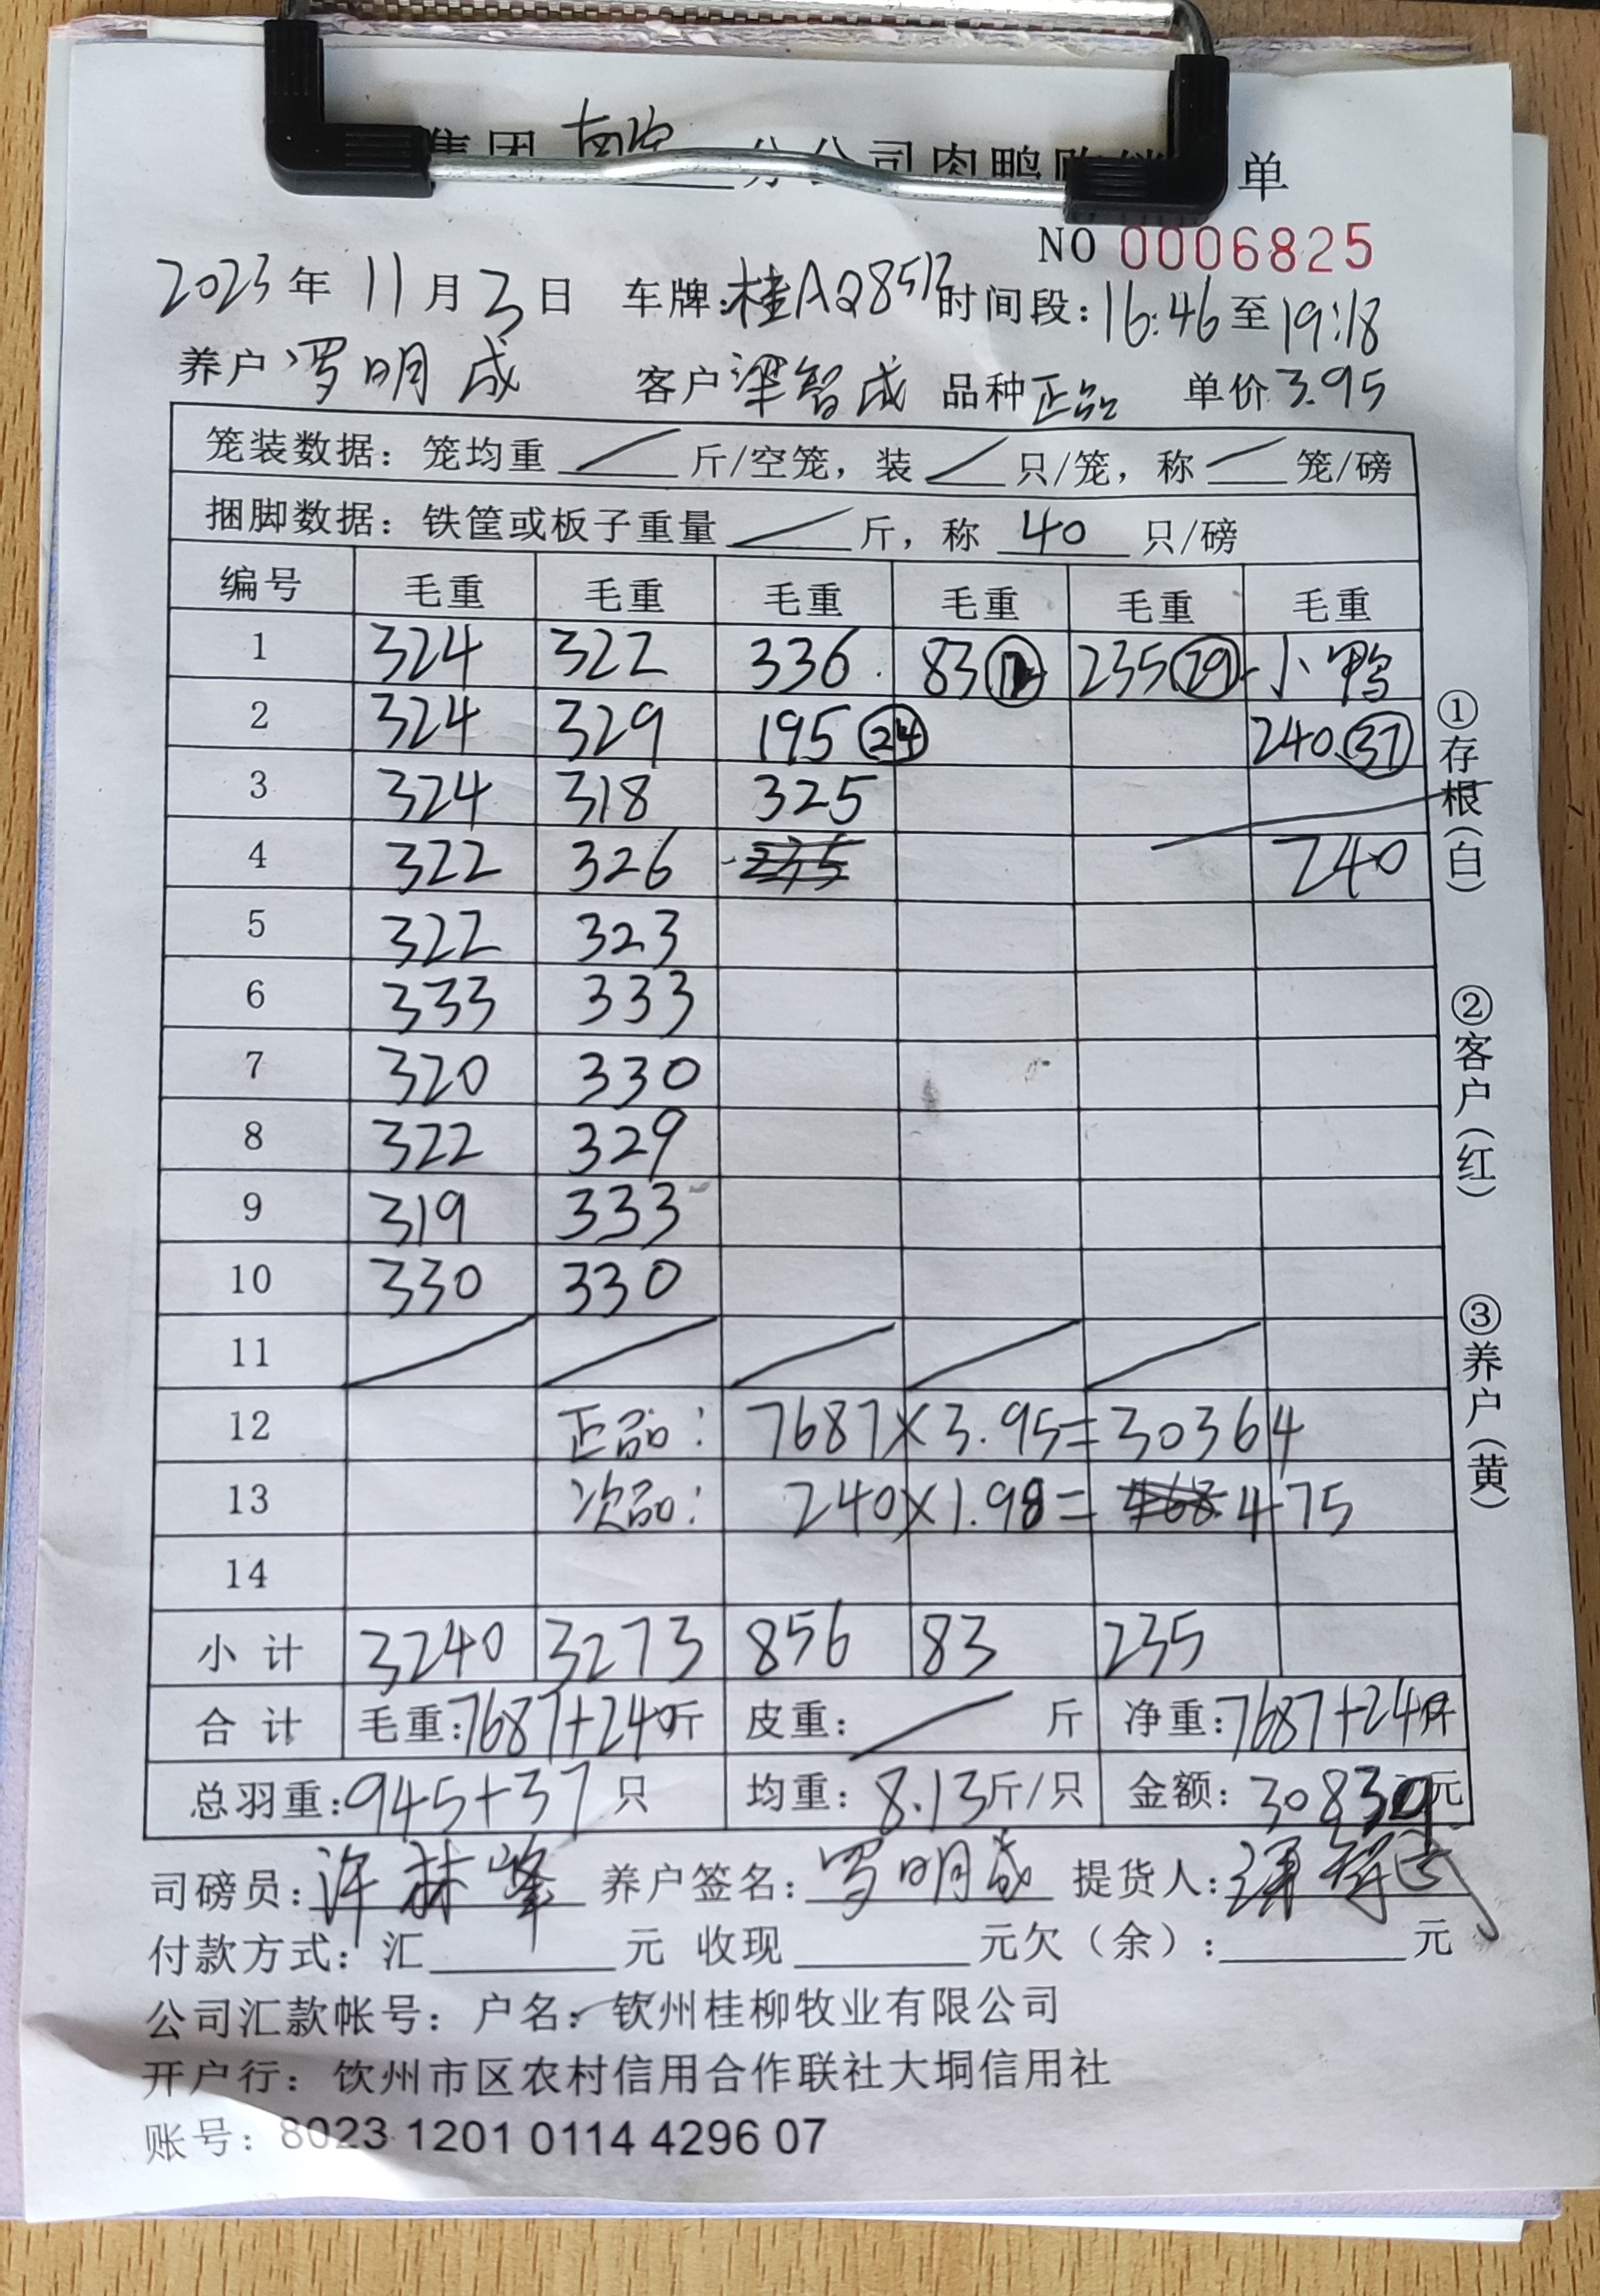 集团 分公司肉鸭购销 单
NO 0006825
2023年11月3日 车牌:桂AQ8513 时间段:16:46至19:18
养户 罗明成 客户 梁智成 品种 正品 单价 3.95
笼装数据: 笼均重 / 斤/空笼, 装 / 只/笼, 称 / 笼/磅
捆脚数据: 铁筐或板子重量 / 斤, 称 40 只/磅
编号 毛重 毛重 毛重 毛重 毛重 毛重
1 324 322 336 83 235 29 小鸭
2 324 329 195 24 240 37
3 324 318 325
4 322 326 240
5 322 323
6 333 333
7 320 330
8 322 329
9 319 333
10 330 330
11 / / / / /
12 正品: 7687×3.95=30364
13 次品: 240×1.98= 468 475
14
小计 3240 3273 856 83 235
合计 毛重:7687+240斤 皮重: / 斤 净重:7687+24斤
总羽重:945+37只 均重:8.13斤/只 金额:30839元
司磅员:许林峰 养户签名:罗明成 提货人:
付款方式: 汇 元 收现 元欠(余): 元
公司汇款帐号: 户名: 钦州桂柳牧业有限公司
开户行: 钦州市区农村信用合作联社大垌信用社
账号: 8023 1201 0114 4296 07
①存根(白)
②客户(红)
③养户(黄)